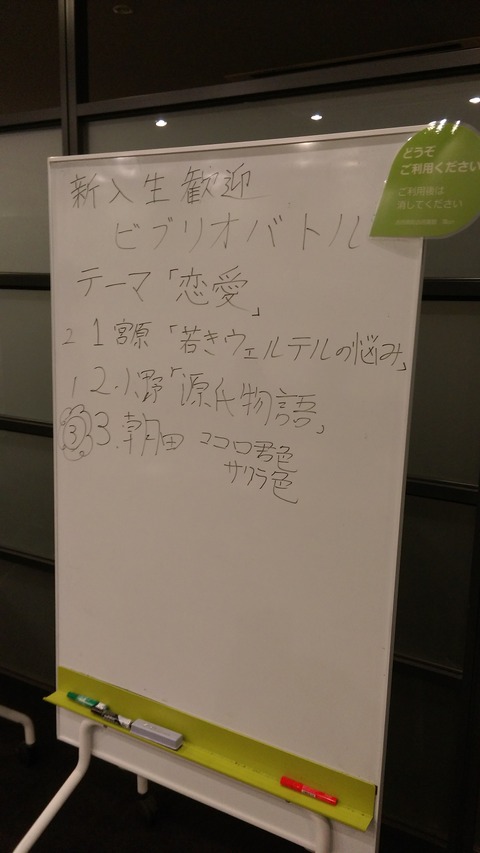 どうぞ
ご利用ください
ご利用後は
消してください
新入生歓迎
ビブリオバトル
テーマ「恋愛」
2 1 宮原「若きウェルテルの悩み」
1 2.小野「源氏物語」
③ 3.朝田 ココロ君色
サクラ色